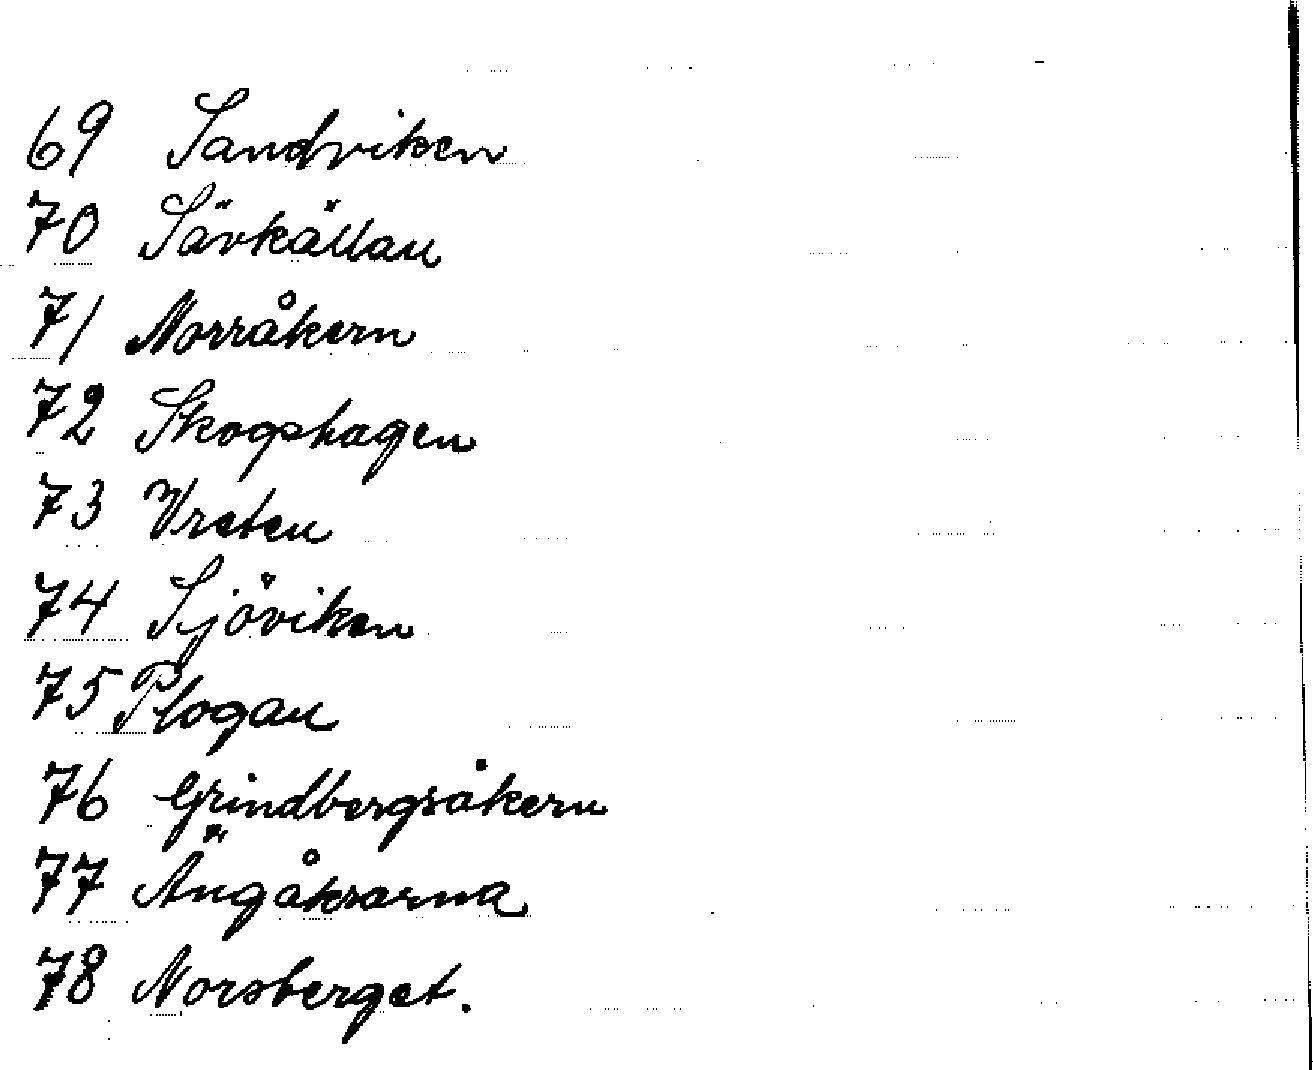 69 Sandviken
70 Sävkällan
71 Norråkern
72 Skogshagen
73 Vreten
74 Sjöviken
75 Plogan
76 Grindbergsåkern
77 Ängåkrarna
78 Norsberget.